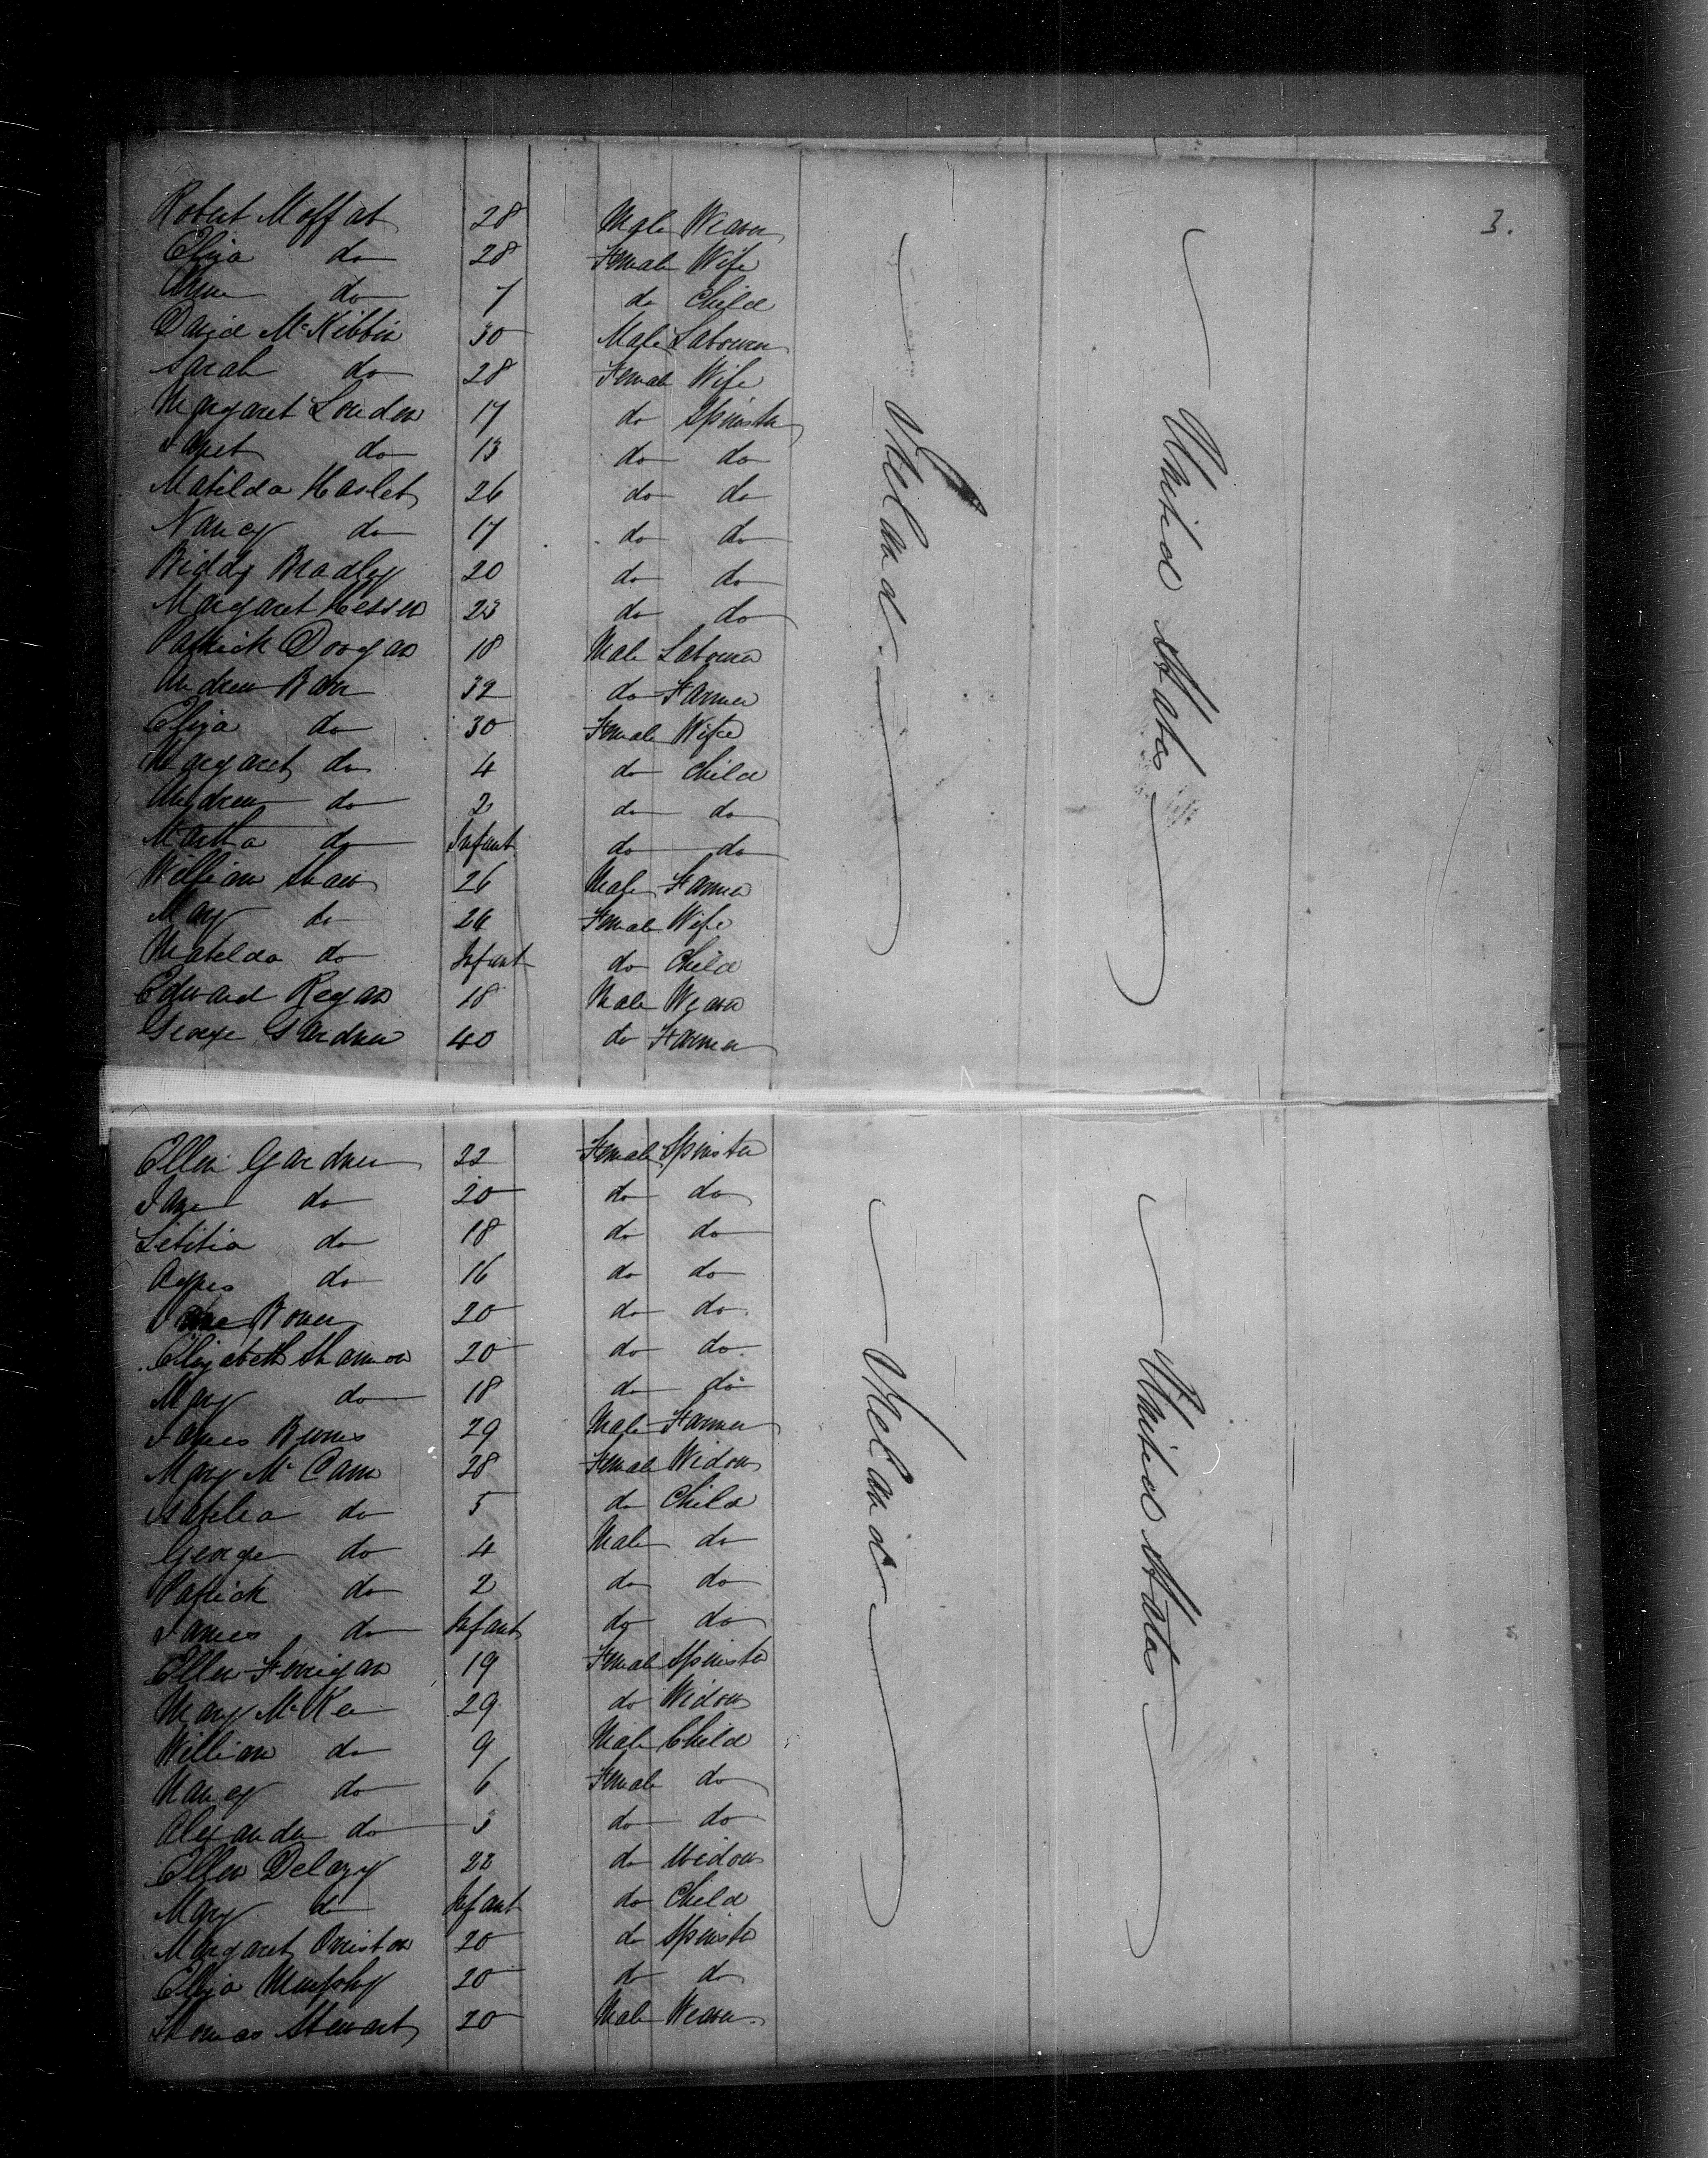 3.
Robert Moffat 28 Male Weaver
Eliza do 28 Female Wife
Anne do 7 do Child
David McKibbin 30 Male Labourer
Sarah do 28 Female Wife
Margaret Louden 17 do Spinster
Janet do 13 do do
Matilda Haslet 26 do do
Nancy do 17 do do
Biddy Bradley 20 do do
Margaret 23 do do
Patrick Doogan 18 Male Labourer
Andrew Barr 32 do Farmer
Eliza do 30 Female Wife
Margaret do 4 do Child
Andrew do 2 do do
Martha do Infant do do
William Shaw 26 Male Farmer
Mary do 24 Female Wife
Matilda do Infant do Child
Edward Regan 18 Male Weaver
George Gardner 40 do Farmer
Ireland
United States
Ellen Gardner 22 Female Spinster
Jane do 20 do do
Letitia do 18 do do
Agnes do 16 do do
Jane Bower 20 do do
Elizabeth Shannon 20 do do
Mary do 18 do do
James Burns 29 Male Farmer
Mary McCann 28 Female Widow
Isabella do 5 do Child
George do 4 Male do
Patrick do 2 do do
James do Infant do do
Ellen Ferrigan 19 Female Spinster
Mary McKee 29 do Widow
William do 9 Male Child
Nancy do 6 Female do
Alexander do 3 do do
Ellen Delazy 22 do Widow
Mary do Infant do Child
Margaret Orniston 20 do Spinster
Eliza Murphy 20 do do
Thomas Stewart 20 Male Weaver
Ireland
United States